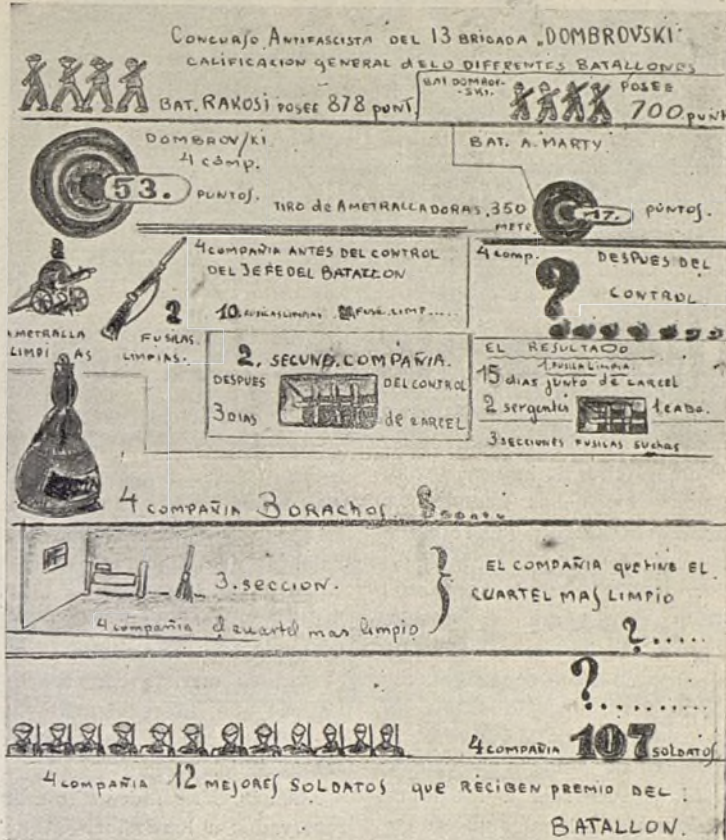 CONCURSO ANTIFASCISTA DEL 13 BRIGADA „DOMBROVSKI"
CALIFICACION GENERAL dELO DIFFERENTES BATALLONES
BAT. RAKOSI POSEE 878 PUNT.
BAT DOMBROF-
-SKI.
POSEE
700 PUNT
DOMBROVSKI
4 comp.
53. PUNTOS.
BAT. A. MARTY.
TIRO de AMETRALLADORAS. 350
METR.
17. PUNTOS.
AMETRALLA
LIMPI AS
2
FUSILAS.
LIMPIAS.
4 COMPAÑIA ANTES DEL CONTROL
DEL JEFE DEL BATALLON
10. FUSILAS LIMPIAS FUSIL. LIMP.....
4 comp. DESPUES DEL
?
CONTROL
2. SECUND. COMPAÑIA.
DESPUES DEL CONTROL
3 DIAS de CARCEL
EL RESULTADO
1. FUSILA LIMPIA.
15 dias junto de CARCEL
2 sergentes 1 CABO.
3 SECCIONES FUSILAS suchas
4 COMPAÑIA BORACHOS.
3. SECCION.
4 compañia el cuartel mas limpio
EL COMPAÑIA QUE TINE EL
CUARTEL MAS LIMPIO
?.....
?
........
4 COMPAÑIA 107 SOLDATOS
4 COMPAÑIA 12 MEJORES SOLDATOS QUE RECIBEN PREMIO DEL :
BATALLON.